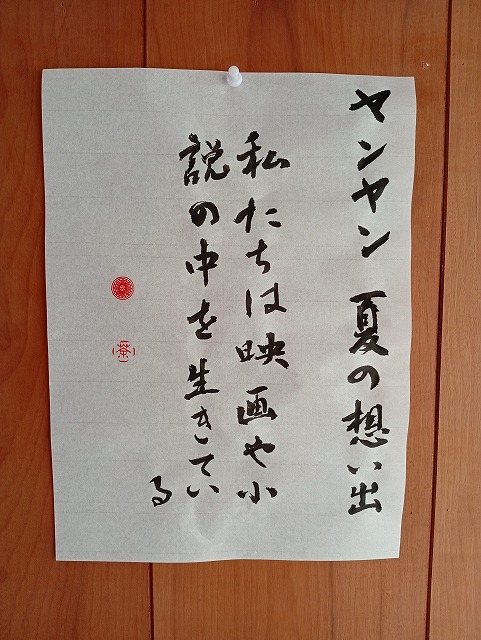 ヤンヤン 夏の想い出
私たちは映画や小
説の中を生きてい
る
茶